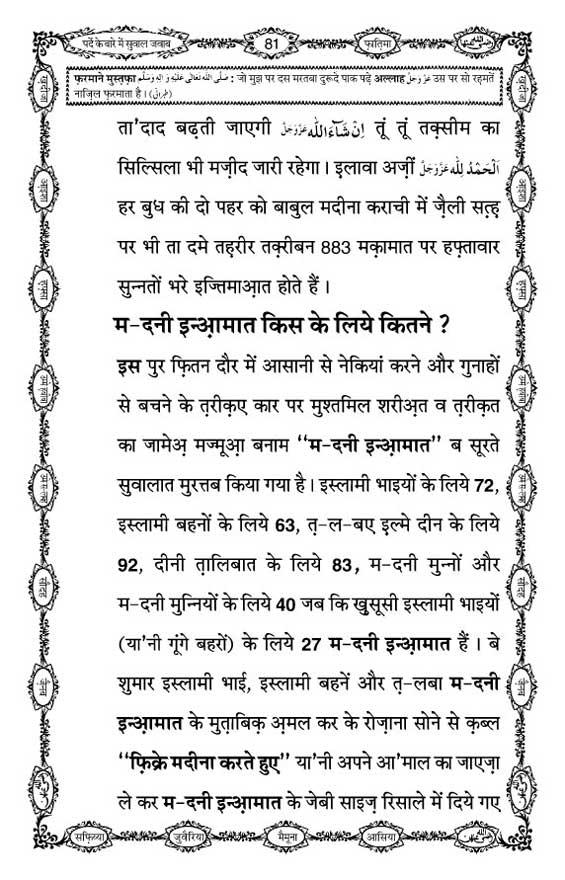 पर्दे के बारे में सुवाल जवाब
81
फ़ातिमा
फ़रमाने मुस्तफ़ा صَلَّى اللهُ تَعَالٰى عَلَيْهِ وَاٰلِهٖ وَسَلَّم : जो मुझ पर दस मरतबा दुरूदे पाक पढ़े अल्लाह عَزَّوَجَلَّ उस पर सो रहमतें
नाज़िल फ़रमाता है। (طبرانی)
ता'दाद बढ़ती जाएगी اِنْ شَآءَاللّٰه عَزَّوَجَلَّ तूं तूं तक़्सीम का
सिल्सिला भी मज़ीद जारी रहेगा। इलावा अज़ीं اَلْحَمْدُ لِلّٰه عَزَّوَجَلَّ
हर बुध की दो पहर को बाबुल मदीना कराची में ज़ैली सत्ह़
पर भी ता दमे तह़रीर तक़्रीबन 883 मक़ामात पर हफ्तावार
सुन्नतों भरे इज्तिमाआ़त होते हैं।
म-दनी इन्आ़मात किस के लिये कितने ?
इस पुर फ़ितन दौर में आसानी से नेकियां करने और गुनाहों
से बचने के त़रीक़ए कार पर मुश्तमिल शरीअ़त व त़रीक़त
का जामेअ़ मज्मूआ़ बनाम ‘‘म-दनी इन्आ़मात’’ ब सूरते
सुवालात मुरत्तब किया गया है। इस्लामी भाइयों के लिये 72,
इस्लामी बहनों के लिये 63, त़-ल-बए इ़ल्मे दीन के लिये
92, दीनी त़ालिबात के लिये 83, म-दनी मुन्नों और
म-दनी मुन्नियों के लिये 40 जब कि ख़ुसूसी इस्लामी भाइयों
(या'नी गूंगे बहरों) के लिये 27 म-दनी इन्आ़मात हैं। बे
शुमार इस्लामी भाई, इस्लामी बहनें और त़-लबा म-दनी
इन्आ़मात के मुत़ाबिक़ अ़मल कर के रोज़ाना सोने से क़ब्ल
‘‘फ़िक्रे मदीना करते हुए’’ या'नी अपने आ'माल का जाएज़ा
ले कर म-दनी इन्आ़मात के जेबी साइज़ रिसाले में दिये गए
सफ़िय्या
जुवैरिया
मैमूना
आसिया